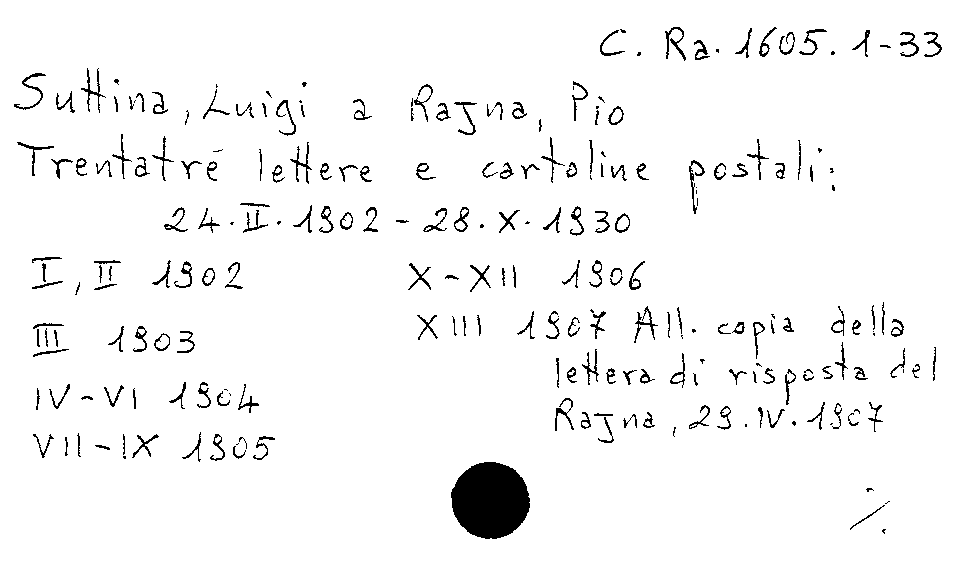 C. Ra. 1605. 1-33
Suttina, Luigi a Rajna, Pio
Trentatré lettere e cartoline postali:
24.II.1902 - 28.X.1930
I, II 1902
III 1903
IV-VI 1904
VII-IX 1905
X-XII 1906
XIII 1907 All. copia della
lettera di risposta del
Rajna, 29.IV.1907
./.